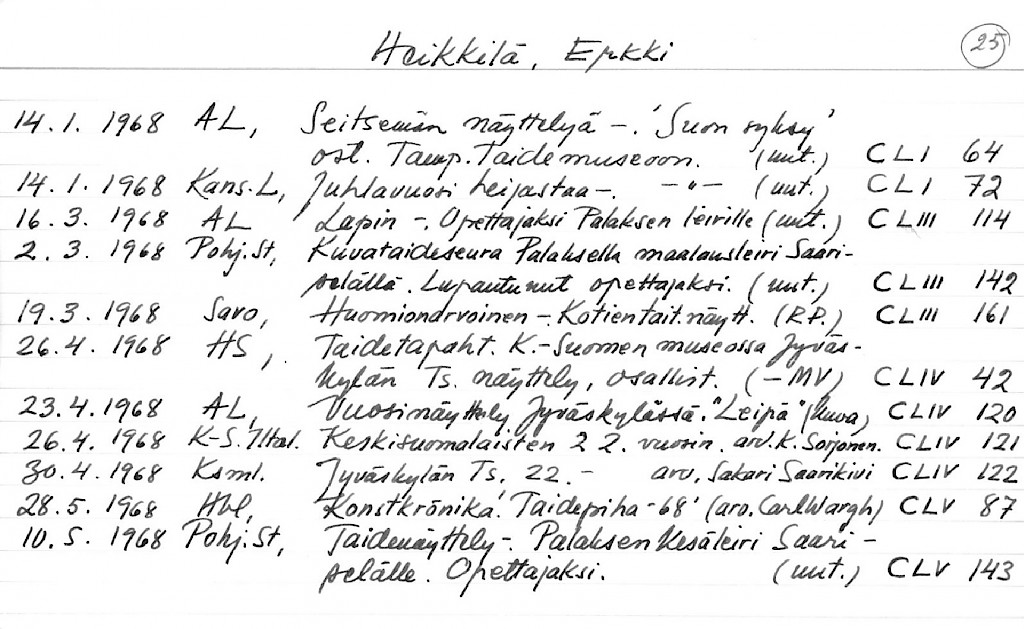 Heikkilä, Erkki 25
14.1.1968 AL, Seitsemän näyttelyä -. 'Suon syksy'
ost. Tamp. Taidemuseoon. (uut.) CLI 64
14.1.1968 Kans.L, Juhlavuosi heijastaa -. -"- (uut.) CLI 72
16.3.1968 AL Lapin -. Opettajaksi Palaksen leirille (uut.) CLIII 114
2.3.1968 Pohj.St, Kuvataideseura Palaksella maalausleiri Saari-
selällä. Lupautunut opettajaksi. (uut.) CLIII 142
19.3.1968 Savo, Huomionarvoinen -. Kotientait.näytt. (R.P.) CLIII 161
26.4.1968 HS, Taidetapaht. K.-Suomen museossa Jyväs-
kylän Ts. näyttely, osallist. (-MV) CLIV 42
23.4.1968 AL, Vuosinäyttely Jyväskylässä. "Leipä" (kuva) CLIV 120
26.4.1968 K-S.Iltal. Keskisuomalaisten 22. vuosin. arv. K. Sorjonen. CLIV 121
30.4.1968 Ksml. Jyväskylän Ts. 22. - arv. Sakari Saarikivi CLIV 122
28.5.1968 Hbl, Konstkrönika. 'Taidepiha-68' (arv. Carl Wargh) CLV 87
10.5.1968 Pohj.St, Taidenäyttely -. Palaksen kesäleiri Saari-
selälle. Opettajaksi. (uut.) CLV 143